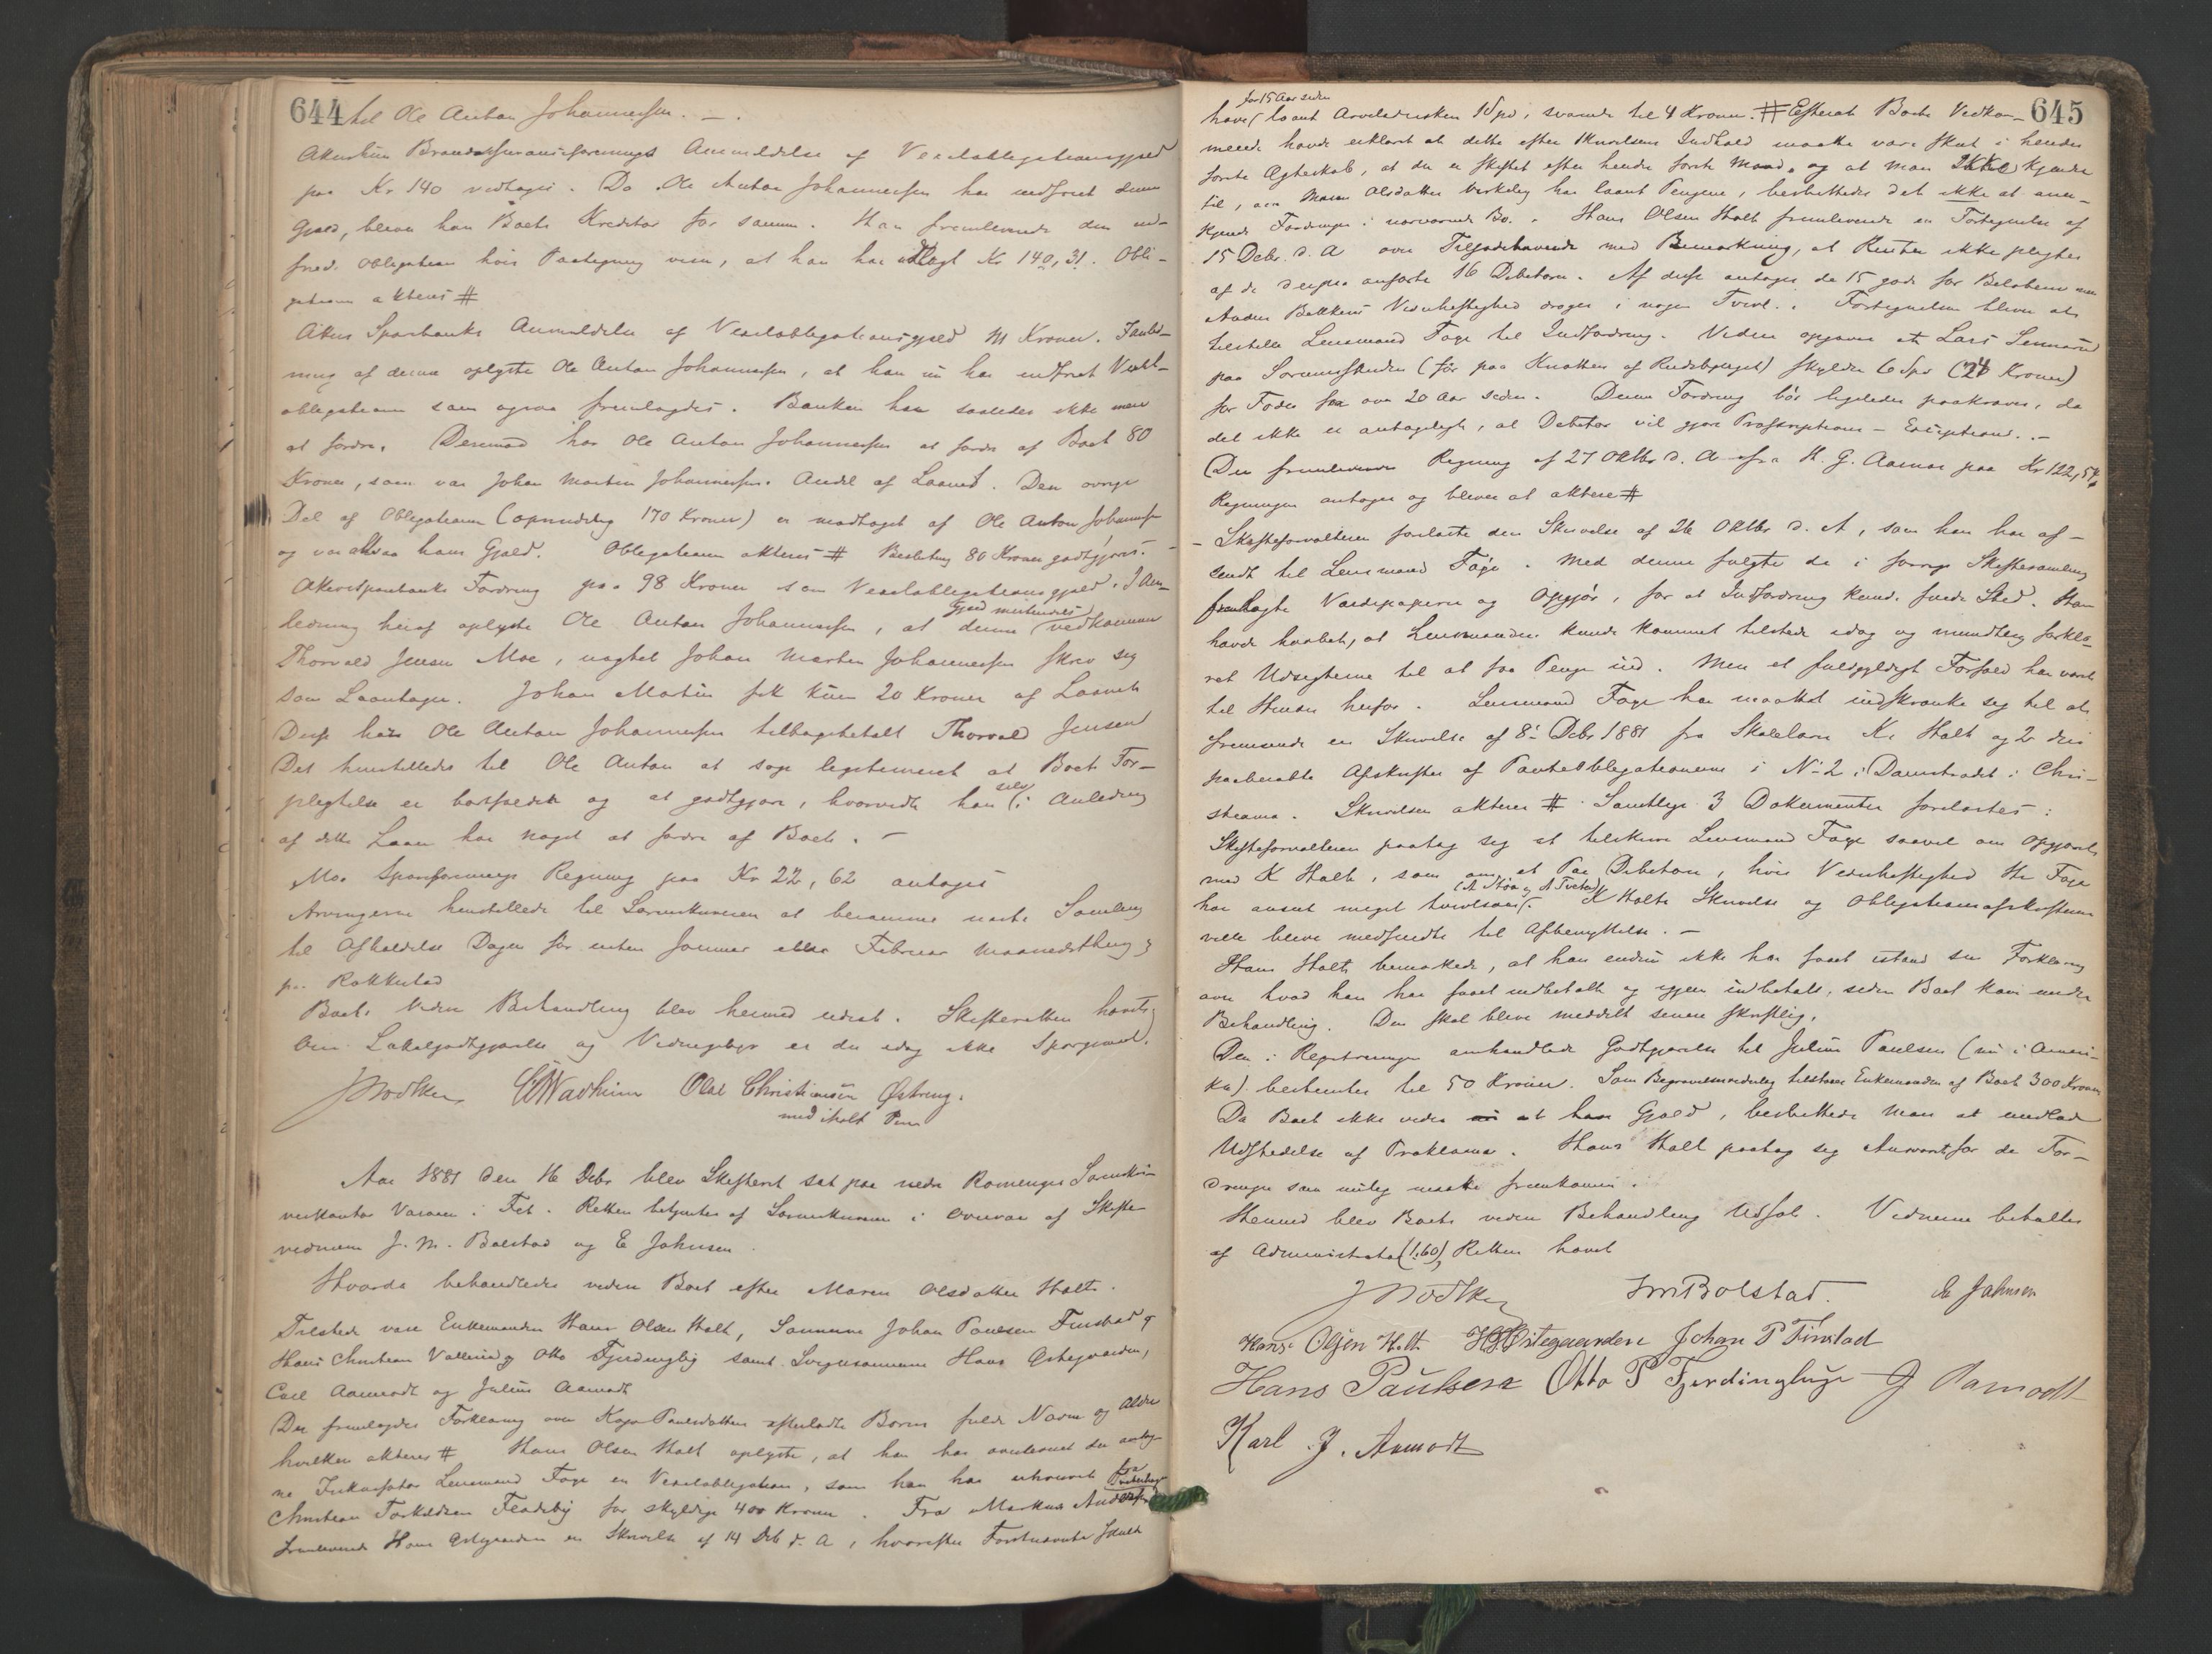 644 til Ole Anton Johannessen. —.
Akershus Brandassuranceforenings Anmeldelse af Vexelobligationsgjæld
paa Kr 140 vedtages. Da Ole Anton Johannessen har indfriet denne
Gjæld, bliver han Boets Kreditor for samme. Han fremleverede den ind-
friede Obligation hvis Paategning viser, at han har udlagt Kr 140,31. Obli-
gationen akteres #
Akers Sparebanks Anmeldelse af Vexelobligationsgjæld Kroner. I Anled-
ning af denne oplyste Ole Anton Johannessen, at han nu har indfriet Vexel-
obligationen som ogsaa fremlagdes. Banken har saaledes ikke mere
at fordre. Derimod har Ole Anton Johannessen at fordre af Boet 80
Kroner, som var Johan Martin Johannessens Andel af Laanet. Den øvrige
Del af Obligationen (oprindelig 170 Kroner) er modtaget af Ole Anton Johannessen
og var altsaa hans Gjæld. Obligationen akteres # Beslutning 80 Kroner godtgjøres.
Akers Sparebanks Fordring paa 98 Kroner som Vexelobligationsgjæld. I An-
ledning heraf oplyste Ole Anton Johannessen, at denne Gjæld vedkommer
Thorvald Jensen Moe, uagtet Johan Martin Johannessen skrev sig
som Laantager. Johan Martin fik kun 20 Kroner af Laanet
Disse har Ole Anton Johannessen tilbagebetalt Thorvald Jensen
Det henstilledes til Ole Anton at søge legitimeret at Boets For-
pligtelse er bortfaldt og at godtgjøre, hvorvidt han selv i Anledning
af dette Laan har noget at fordre af Boet. —
Moe Regning paa Kr 22,62 antages
Arvingerne henstillede til Sorenskriveren at beramme næste Samling
til Afholdelse Dagen før enten Januar eller Februar Maanedsthing
paa Rakkestad
Boets videre Behandling blev hermed udsat. Skifteretten hævet
Om Lokalgodtgjørelse og Vidnegebyr er der idag ikke Spørgsmaal.
Olai Christiansen Østreng.
med iholdt Pen
Aar 1881 den 16 Debr blev Skifteret sat paa nedre Romerikes Sorenskri-
verkontor Varaaen i Fet. Retten betjentes af Sorenskriveren i Overvær af Skifte-
vidnerne J. M. Bolstad og E Johnsen.
Hvorda behandledes videre Boet efter Maren Olsdatter Holt.
Tilstede vare Enkemanden Hans Olsen Holt, Sønnerne Johan Poulsen Finstad,
Hans Christian og Otto Fjerdinglig samt Svigersønnerne Hans Østegaarden,
Carl Aamodt og Julius Aamodt
Der fremlagdes Forklaring over Poulsdatters efterladte Børns fulde Navne og Alder
hvilken akteres # Hans Olsen Holt oplyste, at han har overleveret den antag-
ne Inkassator Lensmand Faye en Vexelobligation, som han har erhvervet fra
Christian Torkildsen Fladeby for skyldige 400 Kroner. Fra Markus Andersen
fremleverede Hans Østegaarden en Skrivelse af 14 Deb d. A, hvorefter Førstnævnte skulde
645
have for 15 Aar siden laant Arveladersken 1 Spd, svarende til 4 Kroner. # Efterat Boets Vedkom-
mende havde erklæret at dette efter Skrivelsens Indhold maatte være skeet i hendes
første Ægteskab, at der er skiftet efter hendes første Mand, og at man ikke kjender
til, om Maren Olsdatter virkelig har laant Pengene, besluttedes det ikke at aner-
kjende Fordringen i nærværende Bo. Hans Olsen Holt fremleverede en Fortegnelse af
15 Debr. d. A over Tilgodehavende med Bemærkning, at Renter ikke pleghtes
af de derpaa anførte 16 Debitorer. Af disse antages de 15 gode for Beløbene men
Anders Bakkens Vederheftighed drages i nogen Tvivl. Fortegnelsen bliver at
tilstille Lensmand Faye til Indfordring. Videre opgaves at Lars
paa (før paa Knatten af ) skylder 6 Spd (24 Kroner)
for Foder for over 20 Aar siden. Denne Fordring bør ligeledes paakræves, da
det ikke er antageligt, at Debitor vil gjøre Præskriptions-Exceptions. —
Der fremleveredes Regning af 27 Oktbr d. A fra H. G. Aamot paa Kr 122,54
Regningen antages og bliver at aktere #
— Skifteforvalteren forelæste den Skrivelse af 26 Oktbr d. A, som han har af-
sendt til Lensmand Faye. Med denne fulgte de i forrige Skiftesamling
fremlagte Værdipapirer og Opgjør, for at Indfordring kunde finde Sted. Han
havde haabet, at Lensmanden kunde kommet tilstede idag og mundtlig forkla-
ret Udsigterne til at faa Penge ind. Men et fuldgyldigt Forfald har været
til Hinder herfor. Lensmand Faye har maattet indskrænke sig til at
fremsende en Skrivelse af 8de Debr 1881 fra Skolelærer K. Holt og 2 deri
paaberaabte Afskrifter af Panteobligationerne i No 2 i Damstrædet i Chri-
stiania. Skrivelsen akteres # Samtlige 3 Dokumenter forelæstes:
Skifteforvalteren paatog sig at tilskrive Lensmand Faye saavel om Opgjøret
med K Holt, som om et Par Debitorer, hvis Vederheftighed Hr Faye
har anseet meget tvivlsom. K Holts Skrivelse og Obligationsafskrifterne
ville blive medsendte til Afbenyttelse. —
Hans Holt bemærkede, at han endnu ikke har faaet istand sin Forklaring
over hvad han har faaet indbetalt og igjen udbetalt, siden Boet kom under
Behandling. Den skal blive meddelt senere skriftlig.
Den i Registreringen omhandlede Godtgjørelse til Julius Paulsen (nu i Ameri-
ka) bestemtes til 50 Kroner. Som Begravelsesvederlag tilstaaes Enkemanden af Boet 300 Kroner
Da Boet ikke vides at have Gjæld, besluttede man at undlade
Udstedelse af Proklama. Hans Holt paatog sig Ansvaret for de For-
dringer som mulig maatte fremkomme.
Hermed blev Boets videre Behandling udsat. Vidnerne betaltes
af Administrator (1,60), Retten hævet
JMBolstad. E Johnsen
Hans Olsen Holt H Østegaarden Johan P Finstad
Hans Paulsen Otto P Fjerdinglige J Aamodt
Karl J. Aamodt